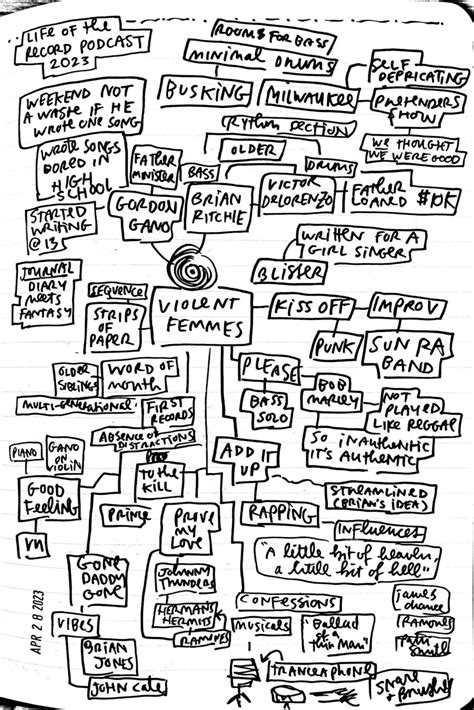 LIFE OF THE
RECORD PODCAST
2023
ROOMS FOR BASS
MINIMAL DRUMS
SELF
DEPRICATING
WEEKEND NOT
A WASTE IF HE
WROTE ONE SONG
BUSKING
MILWAUKEE
PRETENDERS
SHOW
RYTHM SECTION
WE THOUGHT
WE WERE GOOD
OLDER
WROTE SONGS
BORED IN
HIGH
SCHOOL
FATHER
MINISTER
BASS
DRUMS
GORDON
GANO
BRIAN
RITCHIE
VICTOR
DELORENZO
FATHER
LOANED $10K
STARTED
WRITING
@ 13
WRITTEN FOR A
GIRL SINGER
BLISTER
JOURNAL
DIARY
MEETS
FANTASY
SEQUENCE
STRIPS
OF
PAPER
VIOLENT
FEMMES
KISS OFF
IMPROV
PUNK
SUN RA
BAND
OLDER
SIBLINGS
WORD OF
MOUTH
PLEASE
BASS
SOLO
BOB
MARLEY
NOT
PLAYED
LIKE REGGAE
MULTI-GENERATIONAL
FIRST
RECORDS
ABSENCE OF
DISTRACTIONS
SO INAUTHENTIC
IT'S AUTHENTIC
PIANO
GANO
ON
VIOLIN
ADD IT
UP
TO THE
KILL
GOOD
FEELING
STREAMLINED
(BRIAN'S IDEA)
PRINCE
PROVE
MY
LOVE
RAPPING
INFLUENCES
VU
"A little bit of heaven,
a little bit of hell"
GONE
DADDY
GONE
JOHNNY
THUNDERS
HERMANS
HERMITS
RAMONES
CONFESSIONS
JAMES
CHANCE
RAMONES
PATTI
SMITH
VIBES
MUSICALS
"Ballad
of a
Thin Man"
BRIAN
JONES
TRANCEAPHONE
JOHN CALE
SNARE
+ BRUSHES
APR 28 2023